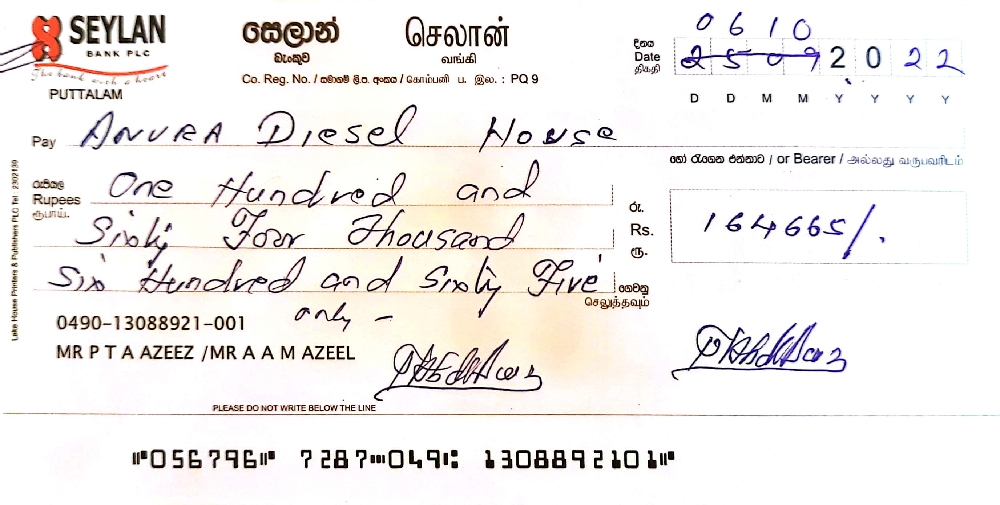 SEYLAN
BANK PLC
The bank with a heart
PUTTALAM
සෙලාන් செலான்
බැංකුව வங்கி
Co. Reg. No. / සමාගම් ලි.ප. අංකය / கோம்பனி ப. இல. : PQ 9
0610
දිනය
Date
திகதி
25092022
D D M M Y Y Y Y
Pay ANURA Diesel House
හෝ රැගෙන එන්නාට / or Bearer / அல்லது வருபவரிடம்
රුපියල්
Rupees
ரூபாய்.
One Hundred and
Sixty Four Thousand
Six Hundred and Sixty Five
only -
ගෙවනු
செலுத்தவும்
රු.
Rs.
ரூ.
164665/.
0490-13088921-001
MR P T A AZEEZ /MR A A M AZEEL
PLEASE DO NOT WRITE BELOW THE LINE
Lake House Printers & Publishers PLC Tel 2302130
⑈056796⑈ 7287⑉049⑆ 1308892101⑈